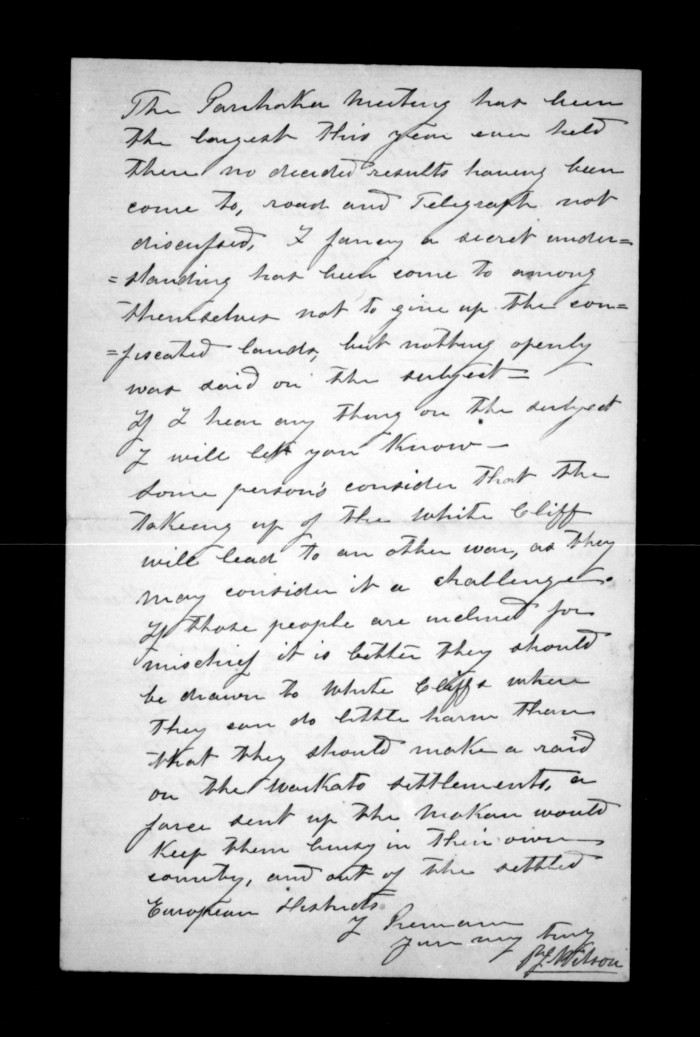 The Parihaka Meeting has been
the largest this year ever held
there no decided results having been
come to, road and Telegraph not
discussed, I fancy a secret under=
=standing has been come to among
themselves not to give up the con=
=fiscated lands, but nothing openly
was said on the subject=
If I hear any thing on the subject
I will let you Know—
Some person's consider that the
takeing up of the White Cliff
will lead to an other war, as they
may consider it a challenge.
If those people are inclined for
mischief it is better they should
be drawn to White Cliffs where
they can do little harm than
that they should make a raid
on the Waikato settlements, a
force sent up the Mokau would
Keep them busy in their own
country, and out of the settled
European districts
I Remain
Your very truly
Wilson